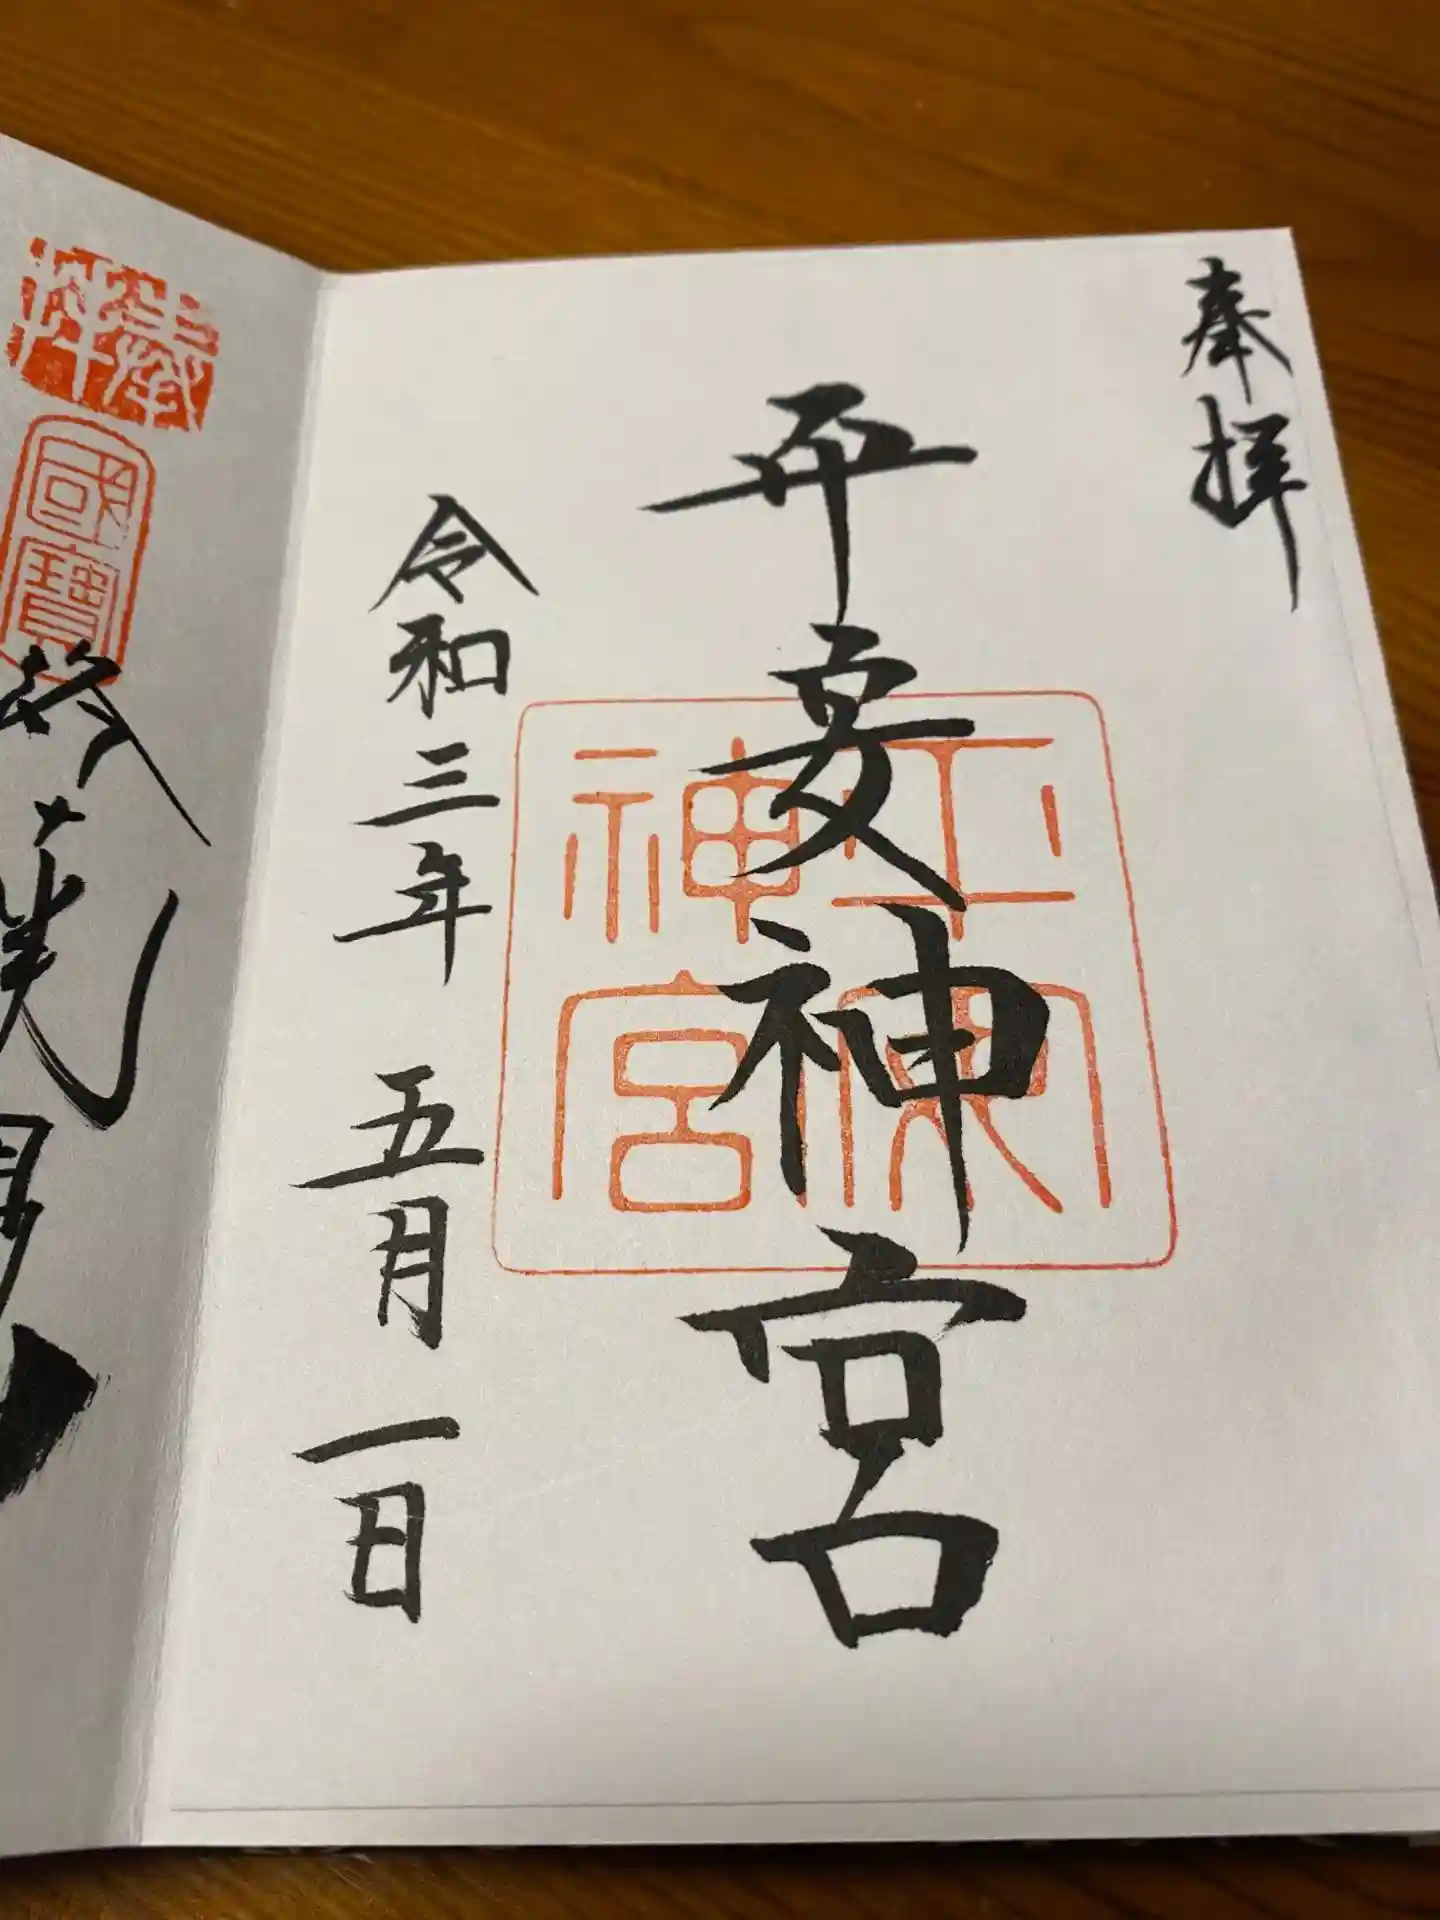 奉拝
平安神宮
平安神宮
令和三年 五月一日
奉拝
國寶